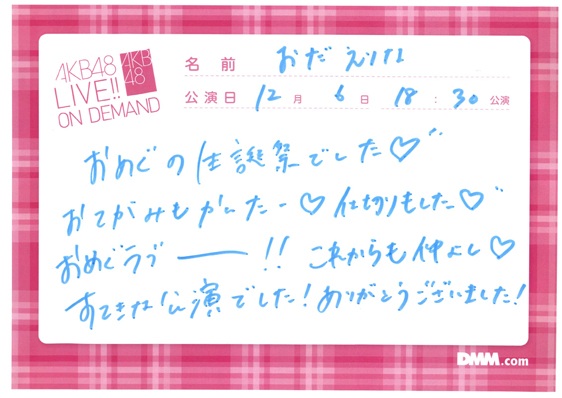 AKB48
LIVE!!
ON DEMAND
AKB
48
名 前 おだえりな
公演日 12 月 6 日 18 : 30 公演
おめぐの生誕祭でした♡
おてがみもかいたー♡仕切りもした♡
おめぐラブー!! これからも仲よし♡
すてきな公演でした!ありがとうございました!
DMM.com